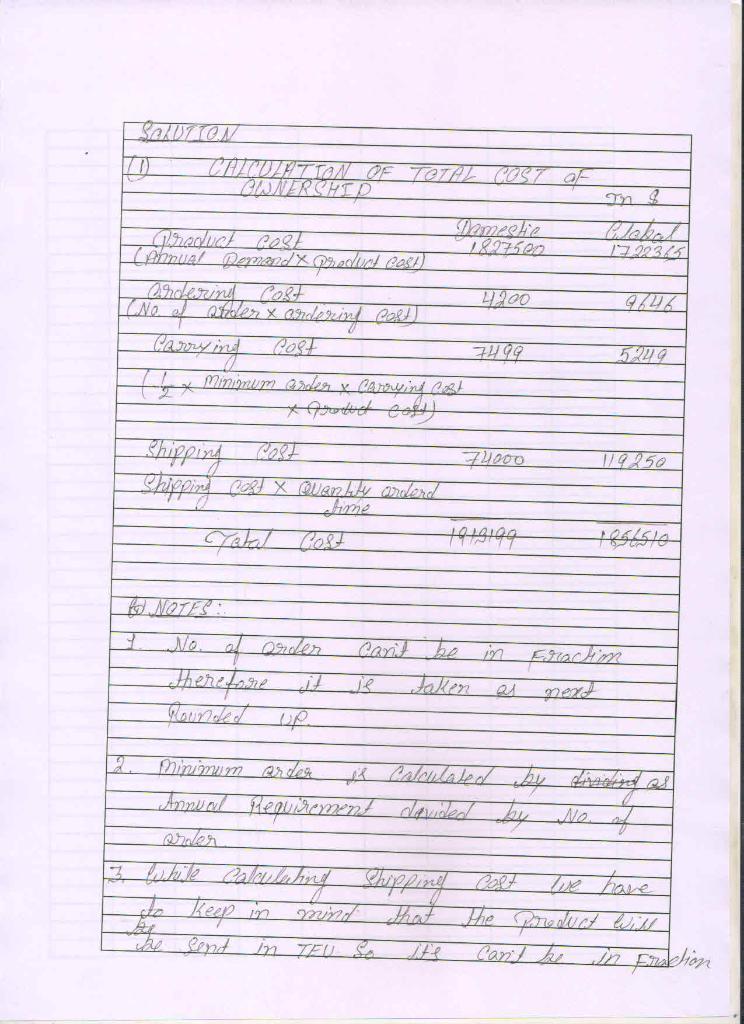 SOLUTION
(1) CALCULATION OF TOTAL COST OF
OWNERSHIP
In $
Domestic Global
Product Cost 1827500 1722365
(Annual Demand x Product Cost)
Ordering Cost 4200 9646
(No. of order x ordering Cost)
Carrying Cost 7499 5249
(1/2 x Minimum order x Carrying Cost
x Product Cost)
Shipping Cost 74000 119250
Shipping Cost x Quantity orderd
time
Total Cost 1913199 1856510
NOTES:
1. No. of order Can't be in Fraction
therefore it is taken as next
Rounded UP.
2. Minimum order is Calculated by dividing as
Annual Requirement devided by No. of
order.
3. While Calculating Shipping Cost we have
to keep in mind that the Product will
be Send in TEU So it's Can't be in Fraction